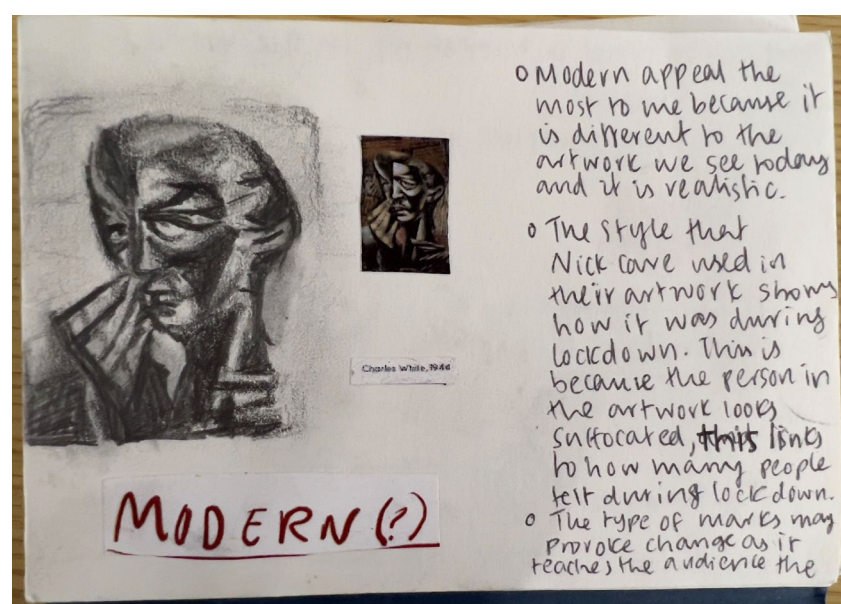 Charles White, 1944
MODERN (?)
o Modern appeal the
most to me because it
is different to the
artwork we see today
and it is realistic.
o The style that
Nick cave used in
their artwork shows
how it was during
lockdown. This is
because the person in
the artwork looks
suffocated, this links
to how many people
felt during lockdown.
o The type of marks may
provoke change as it
teaches the audience the